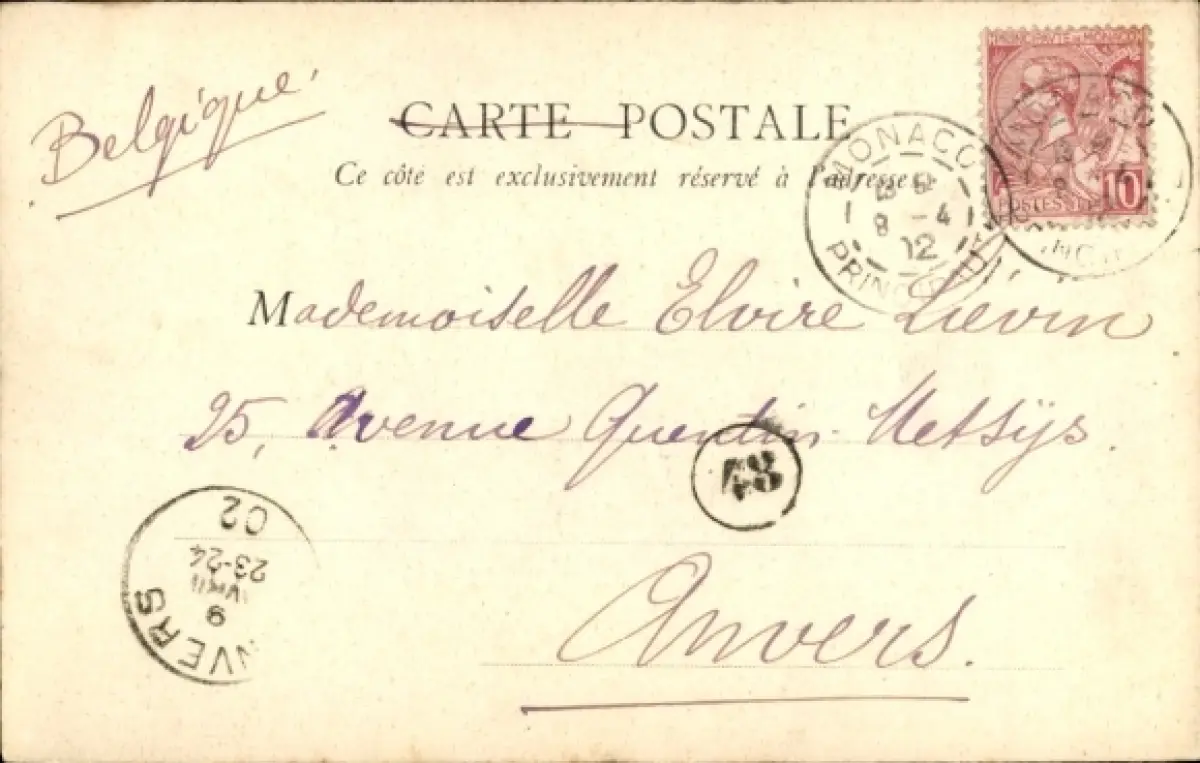 Belgique.
CARTE POSTALE
Ce côté est exclusivement réservé à l'adresse
PRINCIPAUTÉ DE MONACO
POSTES
10
MONACO
8 -4
02
PRINCIPAUTÉ
Mademoiselle Elvire Liévin
25, Avenue Quentin Metsÿs.
Anvers.
02
23-24
AVRIL
9
ANVERS